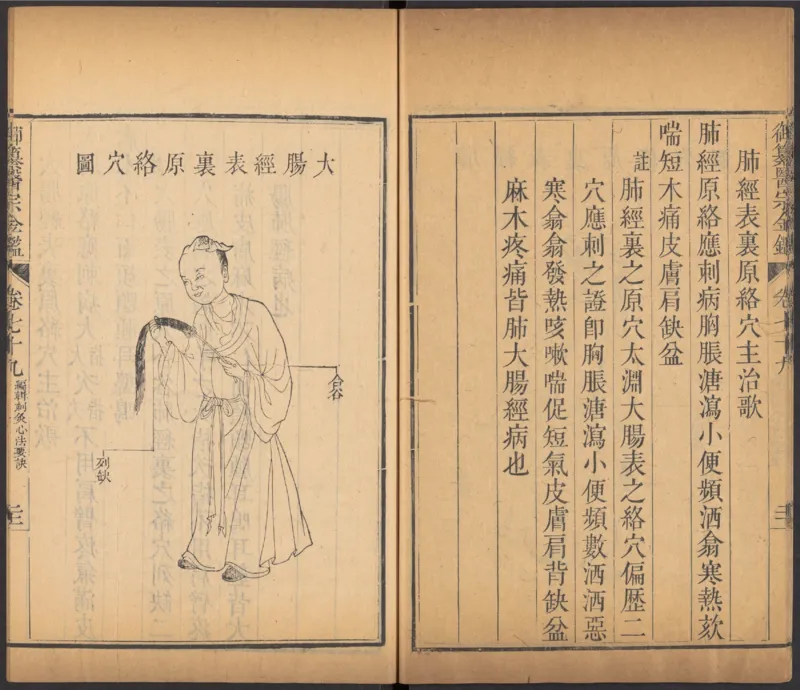 肺經表裏原絡穴主治歌
肺經原絡應刺病胸脹溏瀉小便頻洒翕寒熱欬
喘短木痛皮膚肩缺盆
註肺經裏之原穴太淵大腸表之絡穴偏歷二
穴應刺之證即胸脹溏瀉小便頻數洒洒惡
寒翕翕發熱咳嗽喘促短氣皮膚肩背缺盆
麻木疼痛皆肺大腸經病也
大腸經表裏原絡穴圖
合谷
列缺
御纂醫宗金鑑
卷七十九
編輯刺灸心法要訣